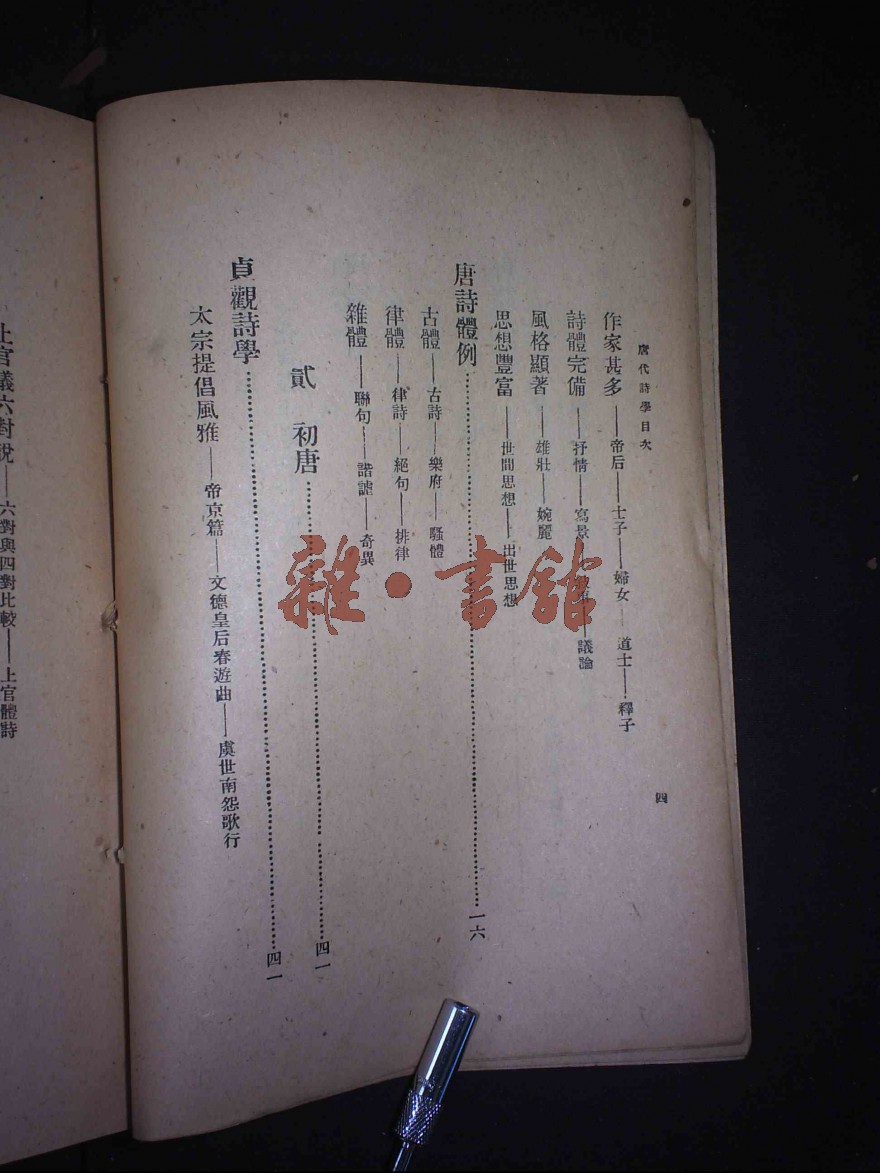 唐代詩學目次
四
作家甚多——帝后——士子——婦女——道士——釋子
詩體完備——抒情——寫景——議論
風格顯著——雄壯——婉麗
思想豐富——世間思想——出世思想
唐詩體例………一六
古體——古詩——樂府——騷體
律體——律詩——絕句——排律
雜體——聯句——諧謔——奇異
貳 初唐………四一
貞觀詩學………四一
太宗提倡風雅——帝京篇——文德皇后春遊曲——虞世南怨歌行
上官儀六對說——六對與四對比較——上官體詩
雜·書館